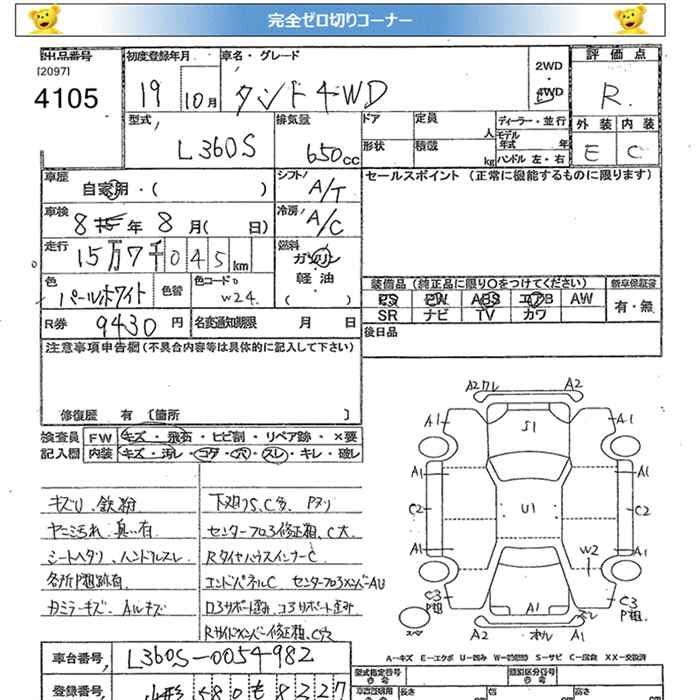 完全ゼロ切りコーナー
出品番号 初度登録年月 車名・グレード 2WD 評価点
[2097] 4105 19 10月 タント 4WD 4WD R
型式 L360S 排気量 650cc ドア 定員 人 ディーラー・並行 外装 内装
形状 積載 kg モデル年式 年 ハンドル 左・右 E C
車歴 自家用・( ) シフト A/T セールスポイント (正常に機能するものに限ります)
車検 8年 8月( 日) 冷房 A/C
走行 15万7千045km 燃料 ガソリン
色 パールホワイト 色替 色コード W24 軽油 ( )
装備品 (純正品に限り○をつけてください) 新車保証書
PS PW ABS エアB AW 有・無
SR ナビ TV カワ
R券 9430円 名変通知期限 月 日 後日品
注意事項申告欄(不具合内容等は具体的に記入して下さい)
修復歴 有 [箇所 ]
検査員 FW キズ・飛石・ヒビ割・リペア跡・X要
記入欄 内装 キズ・汚レ・コゲ・穴・スレ・キレ・破レ
キズU、鉄粉 下廻りS、C多 Pヌリ
ヤニ汚れ 臭い有
シートヘタリ、ハンドルスレ RタイヤハウスインナーC
各所P題跡有 エンドパネルC
カミラーキズ・A1キズ
A2ワレ A2
A1 S1 A1
A1 A1
C2 U1 C2
A1 W2 A1
C3 P粗 C3 P粗
スペア A2 オル A1 A1 ズレ
A-キズ E-エクボ U-凹み S-サビ C-腐食 XX-交換済
車台番号 L360S-0054982 型式指定番号 類別区分番号
登録番号 山形 580 も 8227 長さ 幅 高さ